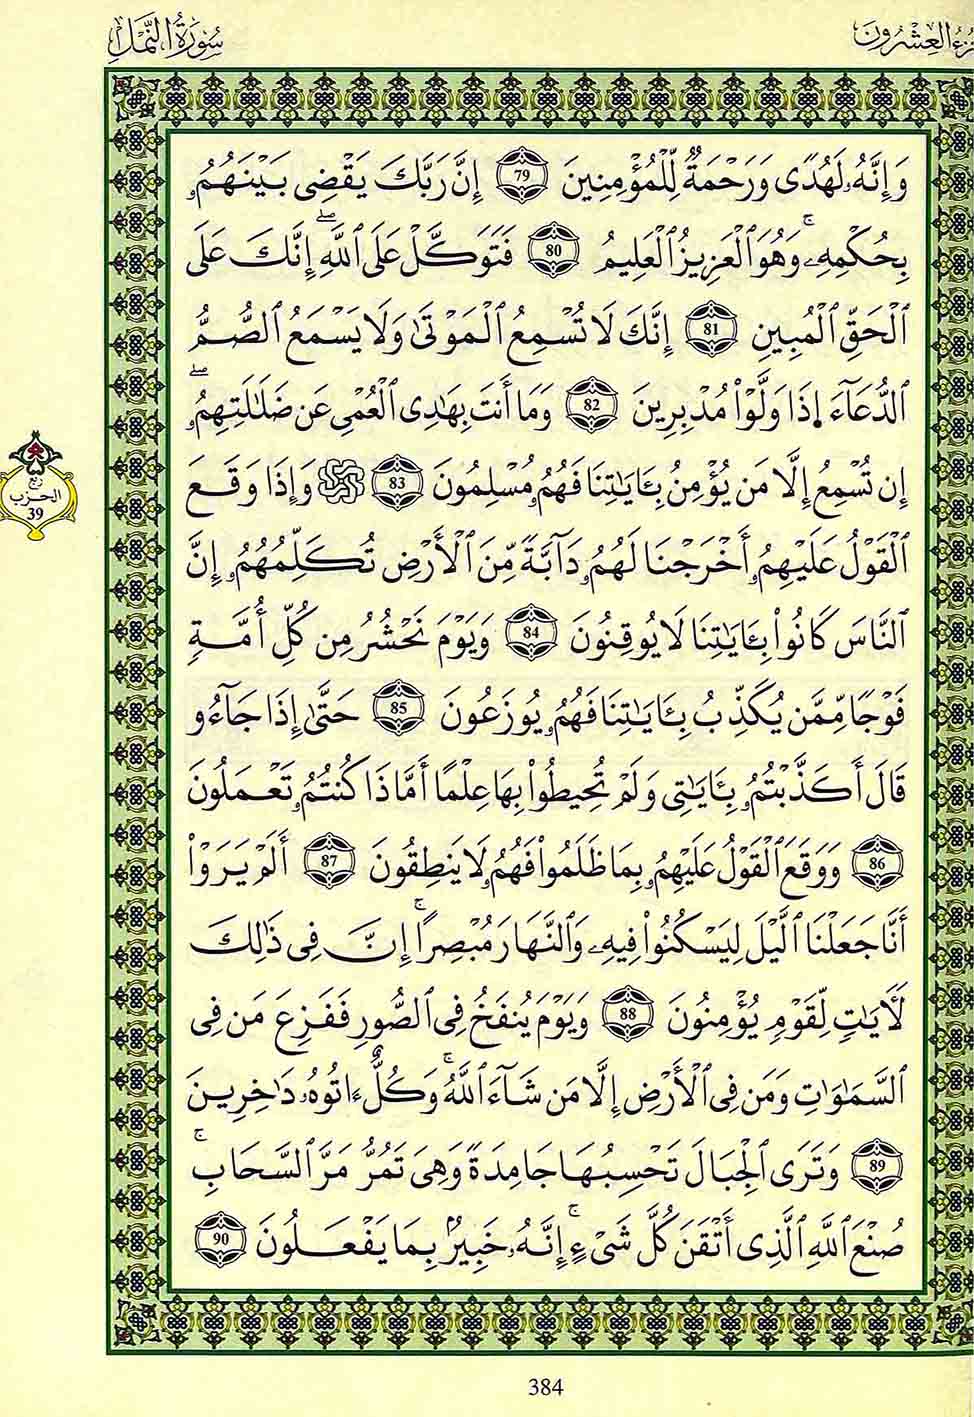 سُورَةُ النَّمْلِ
ـزءُ العِشْرُونَ
وَإِنَّهُۥ لَهُدًى وَرَحْمَةٌ لِّلْمُؤْمِنِينَ 79 إِنَّ رَبَّكَ يَقْضِى بَيْنَهُمُۥ
بِحُكْمِهِۦۚ وَهُوَ ٱلْعَزِيزُ ٱلْعَلِيمُ 80 فَتَوَكَّلْ عَلَى ٱللَّهِۖ إِنَّكَ عَلَى
ٱلْحَقِّ ٱلْمُبِينِ 81 إِنَّكَ لَا تُسْمِعُ ٱلْمَوْتَىٰ وَلَا يَسْمَعُ ٱلصُّمُّ
ٱلدُّعَآءَ ا۪ذَا وَلَّوْاْ مُدْبِرِينَ 82 وَمَا أَنتَ بِهَٰدِى ٱلْعُمْىِ عَن ضَلَٰلَتِهِمُۥۖ
إِن تُسْمِعُ إِلَّا مَن يُؤْمِنُ بِـَٔايَٰتِنَا فَهُمُۥ مُسْلِمُونَ 83 وَإِذَا وَقَعَ
ربع الحزب 39
ٱلْقَوْلُ عَلَيْهِمُۥ أَخْرَجْنَا لَهُمُۥ دَآبَّةً مِّنَ ٱلْأَرْضِ تُكَلِّمُهُمُۥ إِنَّ
ٱلنَّاسَ كَانُواْ بِـَٔايَٰتِنَا لَا يُوقِنُونَ 84 وَيَوْمَ نَحْشُرُ مِن كُلِّ أُمَّةٍ
فَوْجًا مِّمَّن يُكَذِّبُ بِـَٔايَٰتِنَا فَهُمُۥ يُوزَعُونَ 85 حَتَّىٰ إِذَا جَآءُو
قَالَ أَكَذَّبْتُمُۥ بِـَٔايَٰتِى وَلَمْ تُحِيطُواْ بِهَا عِلْمًا أَمَّاذَا كُنتُمُۥ تَعْمَلُونَ
86 وَوَقَعَ ٱلْقَوْلُ عَلَيْهِمُۥ بِمَا ظَلَمُواْ فَهُمُۥ لَا يَنطِقُونَ 87 أَلَمْ يَرَوْاْ
أَنَّا جَعَلْنَا ٱلَّيْلَ لِيَسْكُنُواْ فِيهِۦ وَٱلنَّهَارَ مُبْصِرًاۚ إِنَّ فِى ذَٰلِكَ
لَأٓيَٰتٍ لِّقَوْمٍ يُؤْمِنُونَ 88 وَيَوْمَ يُنفَخُ فِى ٱلصُّورِ فَفَزِعَ مَن فِى
ٱلسَّمَٰوَٰتِ وَمَن فِى ٱلْأَرْضِ إِلَّا مَن شَآءَ ٱللَّهُۚ وَكُلٌّ ءَاتُوهُۥ دَٰخِرِينَ
89 وَتَرَى ٱلْجِبَالَ تَحْسِبُهَا جَامِدَةً وَهِىَ تَمُرُّ مَرَّ ٱلسَّحَابِۚ
صُنْعَ ٱللَّهِ ٱلَّذِى أَتْقَنَ كُلَّ شَىْءٍۚ إِنَّهُۥ خَبِيرٌۢ بِمَا يَفْعَلُونَ 90
384